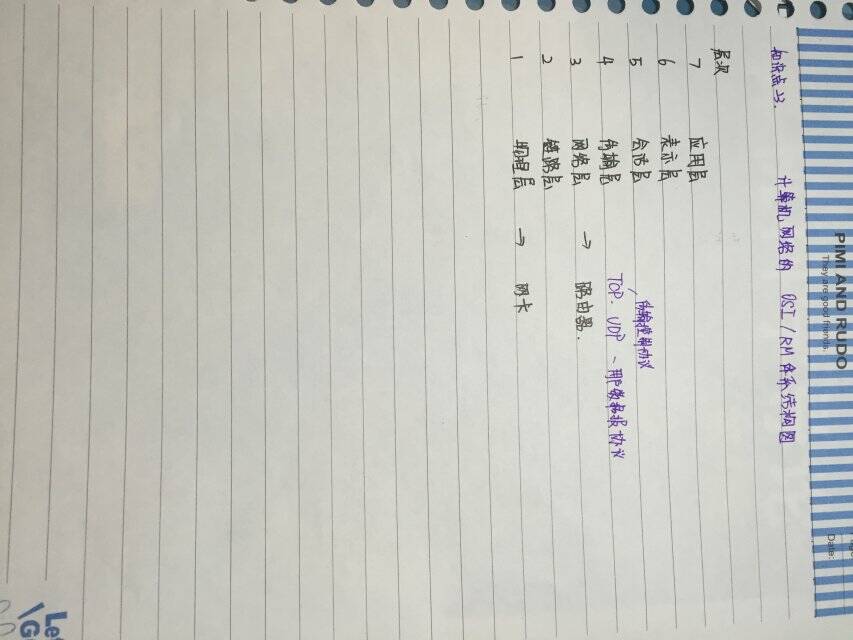 PIMI AND RUDO
They are good friends.
Date:
知识点23.
计算机网络的 OSI/RM体系结构图
层次
7 应用层
6 表示层
5 会话层
传输控制协议
4 传输层 TOP. UDP - 用户数据报协议
3 网络层 → 路由器.
2 链路层
1 物理层 → 网卡